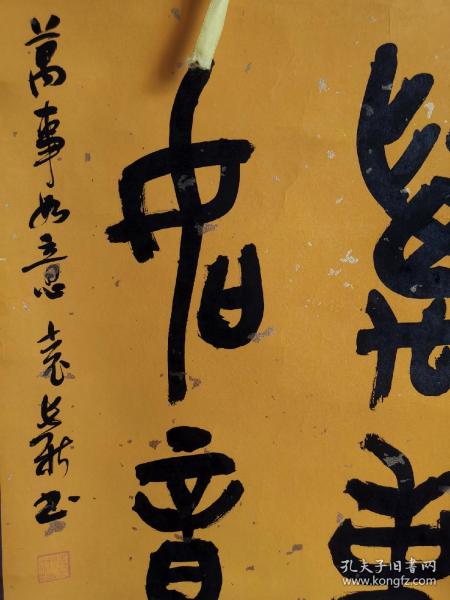 萬事
如意
萬事如意 袁 新书
孔夫子旧书网
www.kongfz.com